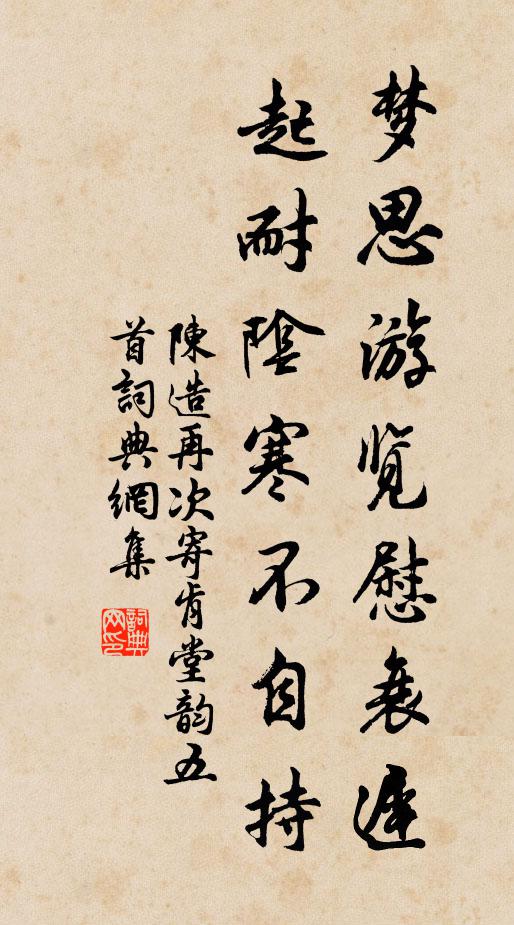 梦思游览慰衰遲
起耐陰寒不自持
陳造再次寄肯堂韵五
首詞典網集
詞典网印